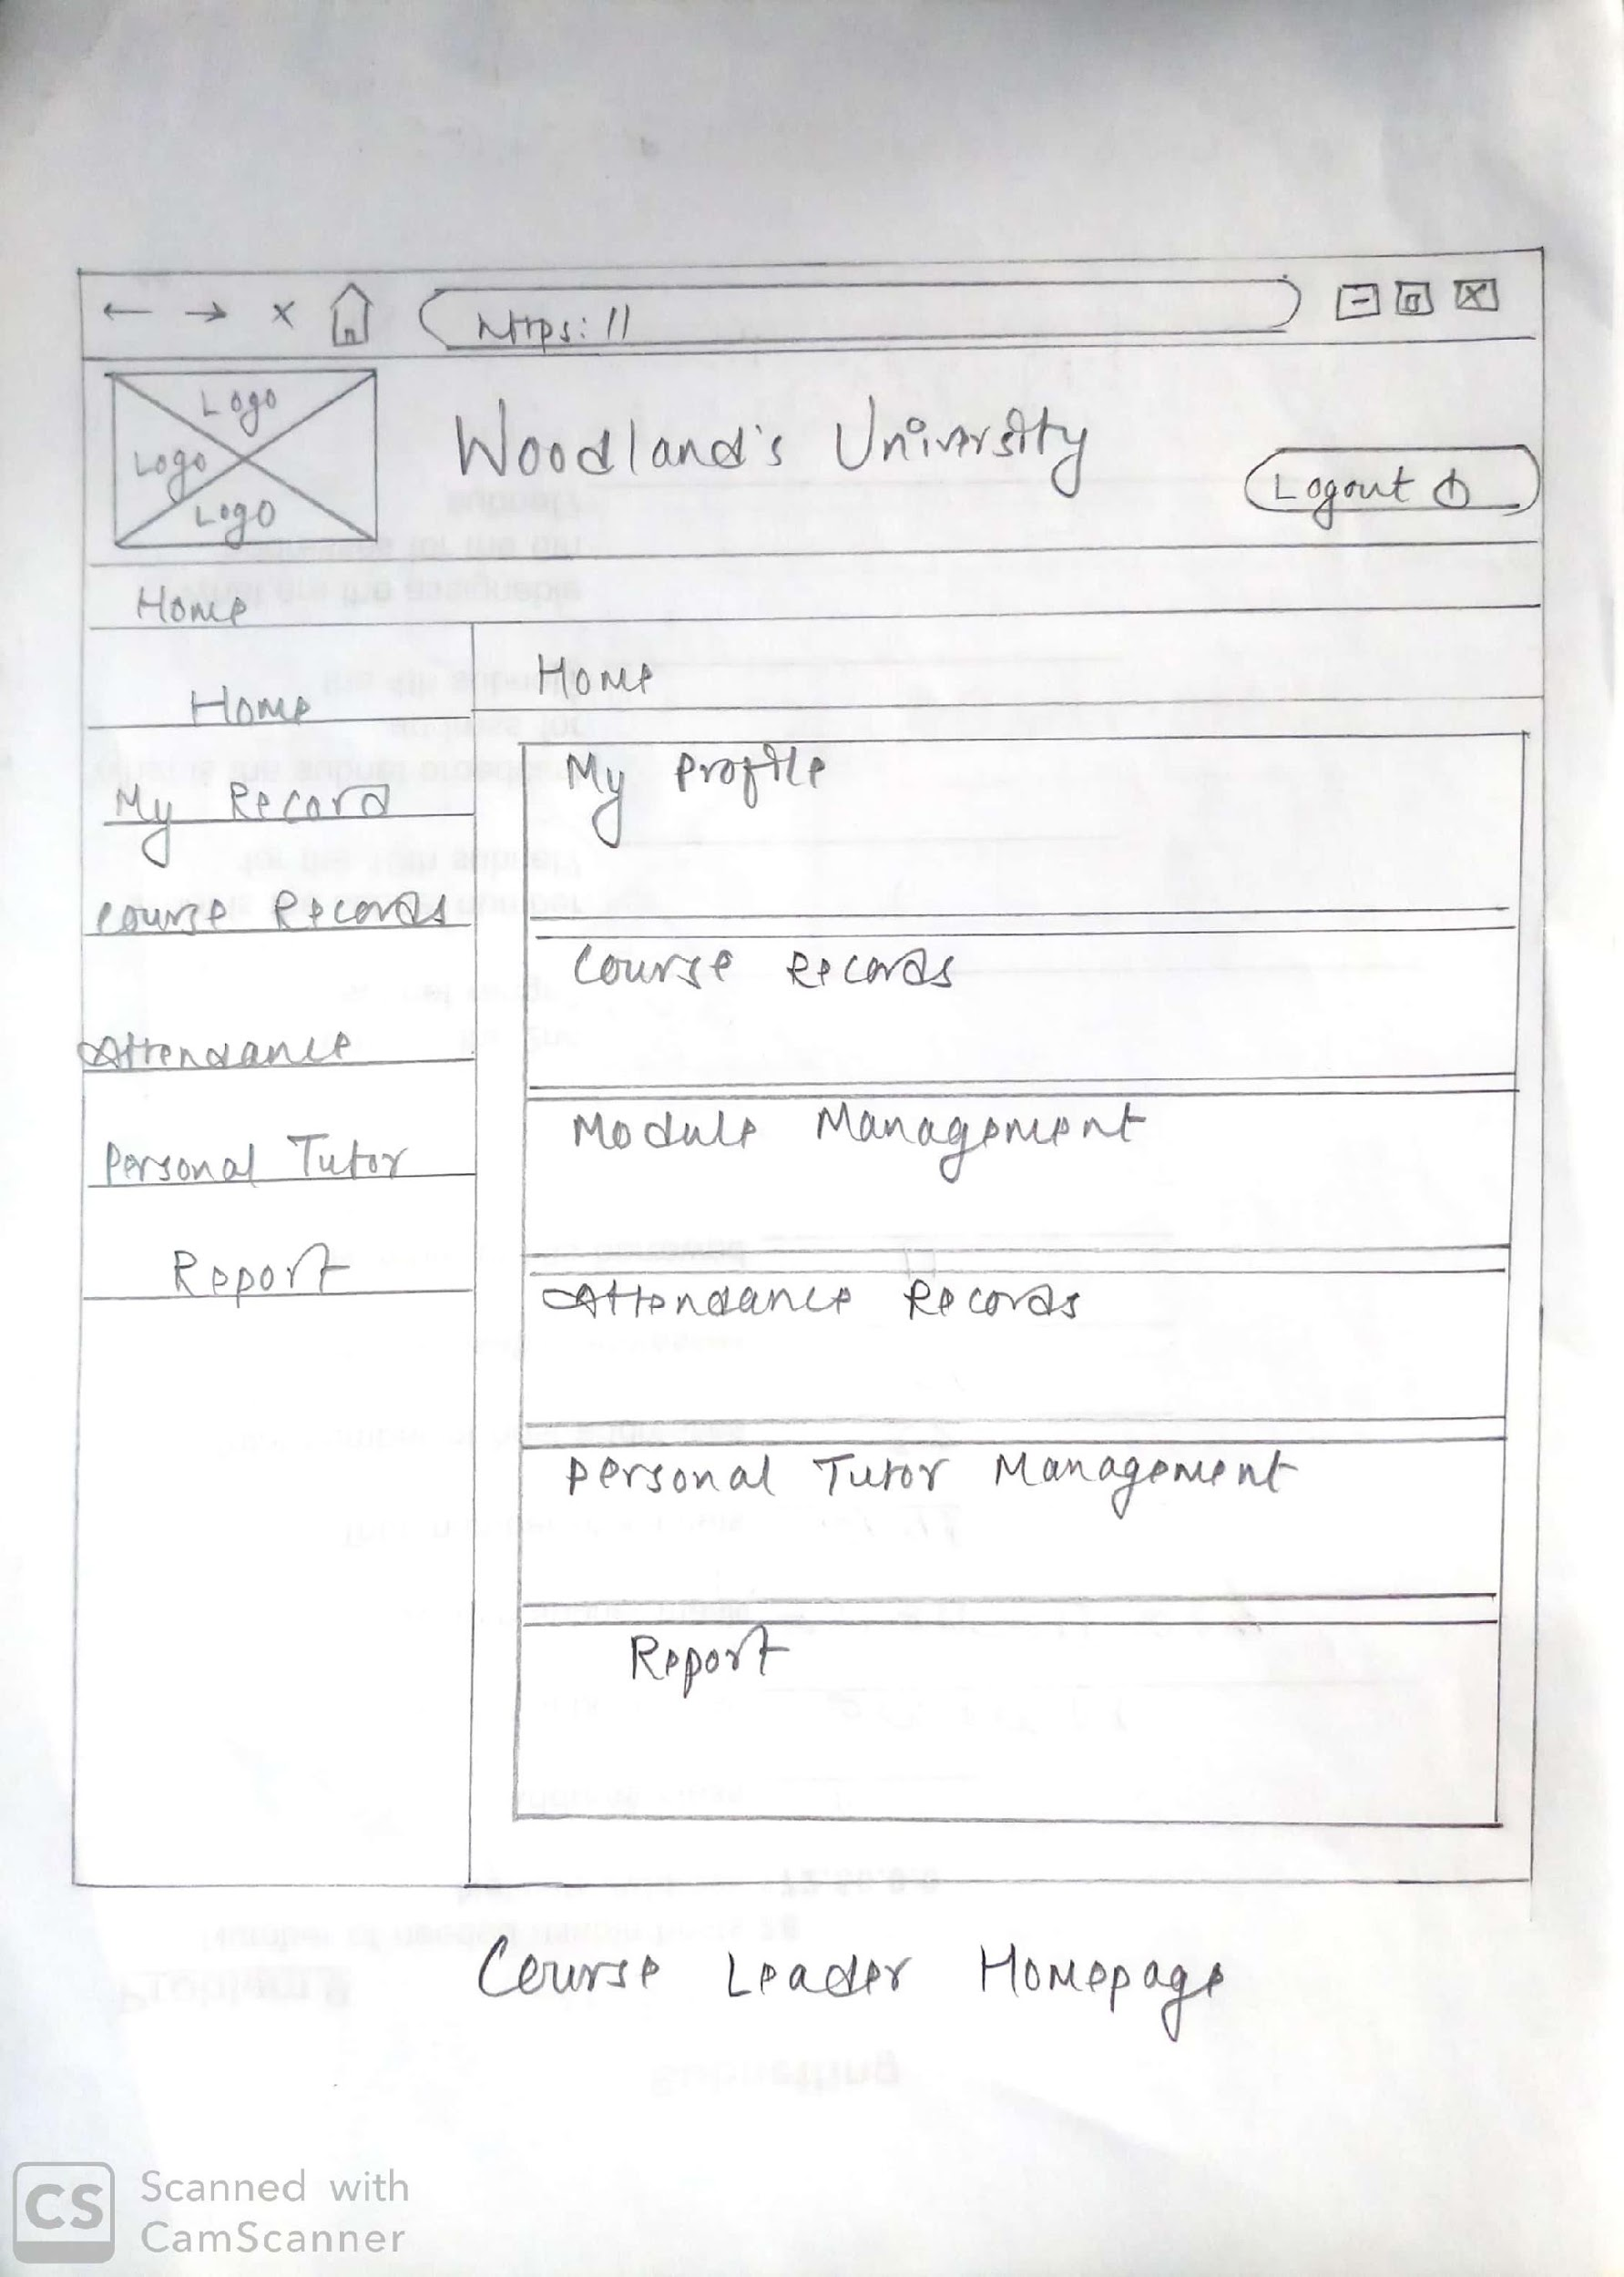 https://
Logo
Logo
Logo
Woodland's University
Logout
Home
Home
My Record
Course Records
Attendance
Personal Tutor
Report
Home
My Profile
Course Records
Module Management
Attendance Records
Personal Tutor Management
Report
Course Leader Homepage
CS
Scanned with
CamScanner